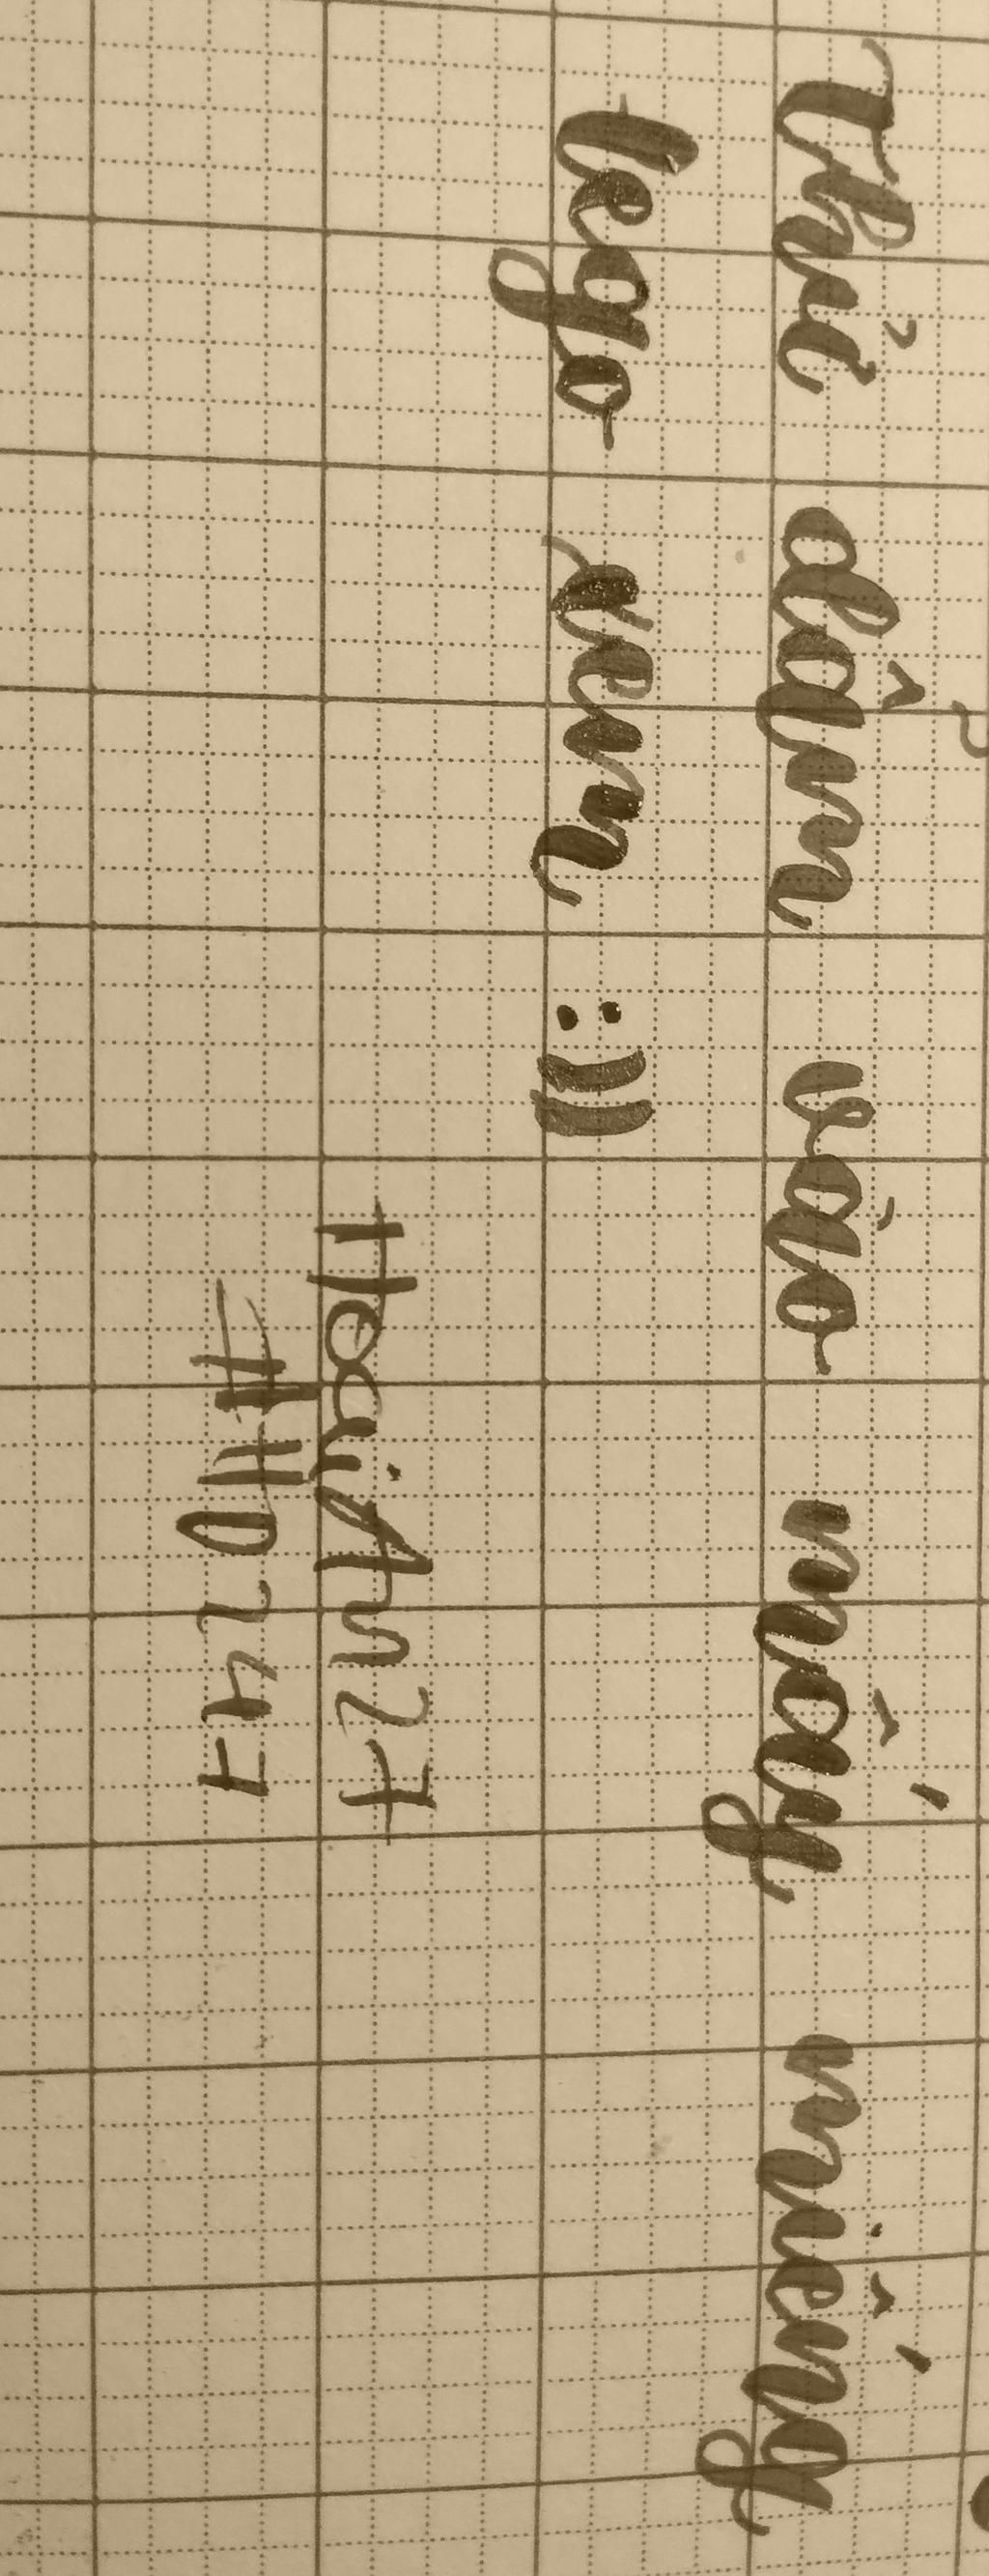 Thử dẫm vào mấy miếng
lego xem :))
HoaiAn27
#HD247